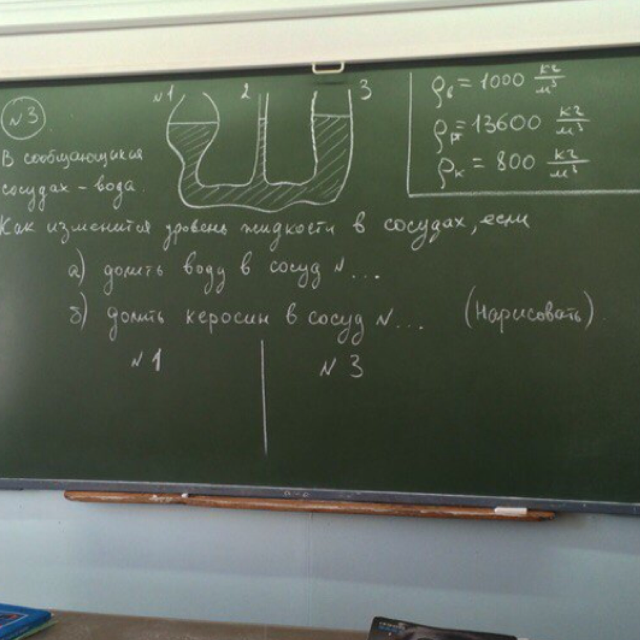 №3
№1 2 3
В сообщающихся
сосудах - вода.
ρв = 1000 кг/м³
ρрт = 13600 кг/м³
ρк = 800 кг/м³
Как изменится уровень жидкости в сосудах, если
а) долить воду в сосуд №...
б) долить керосин в сосуд №... (Нарисовать)
№1 №3